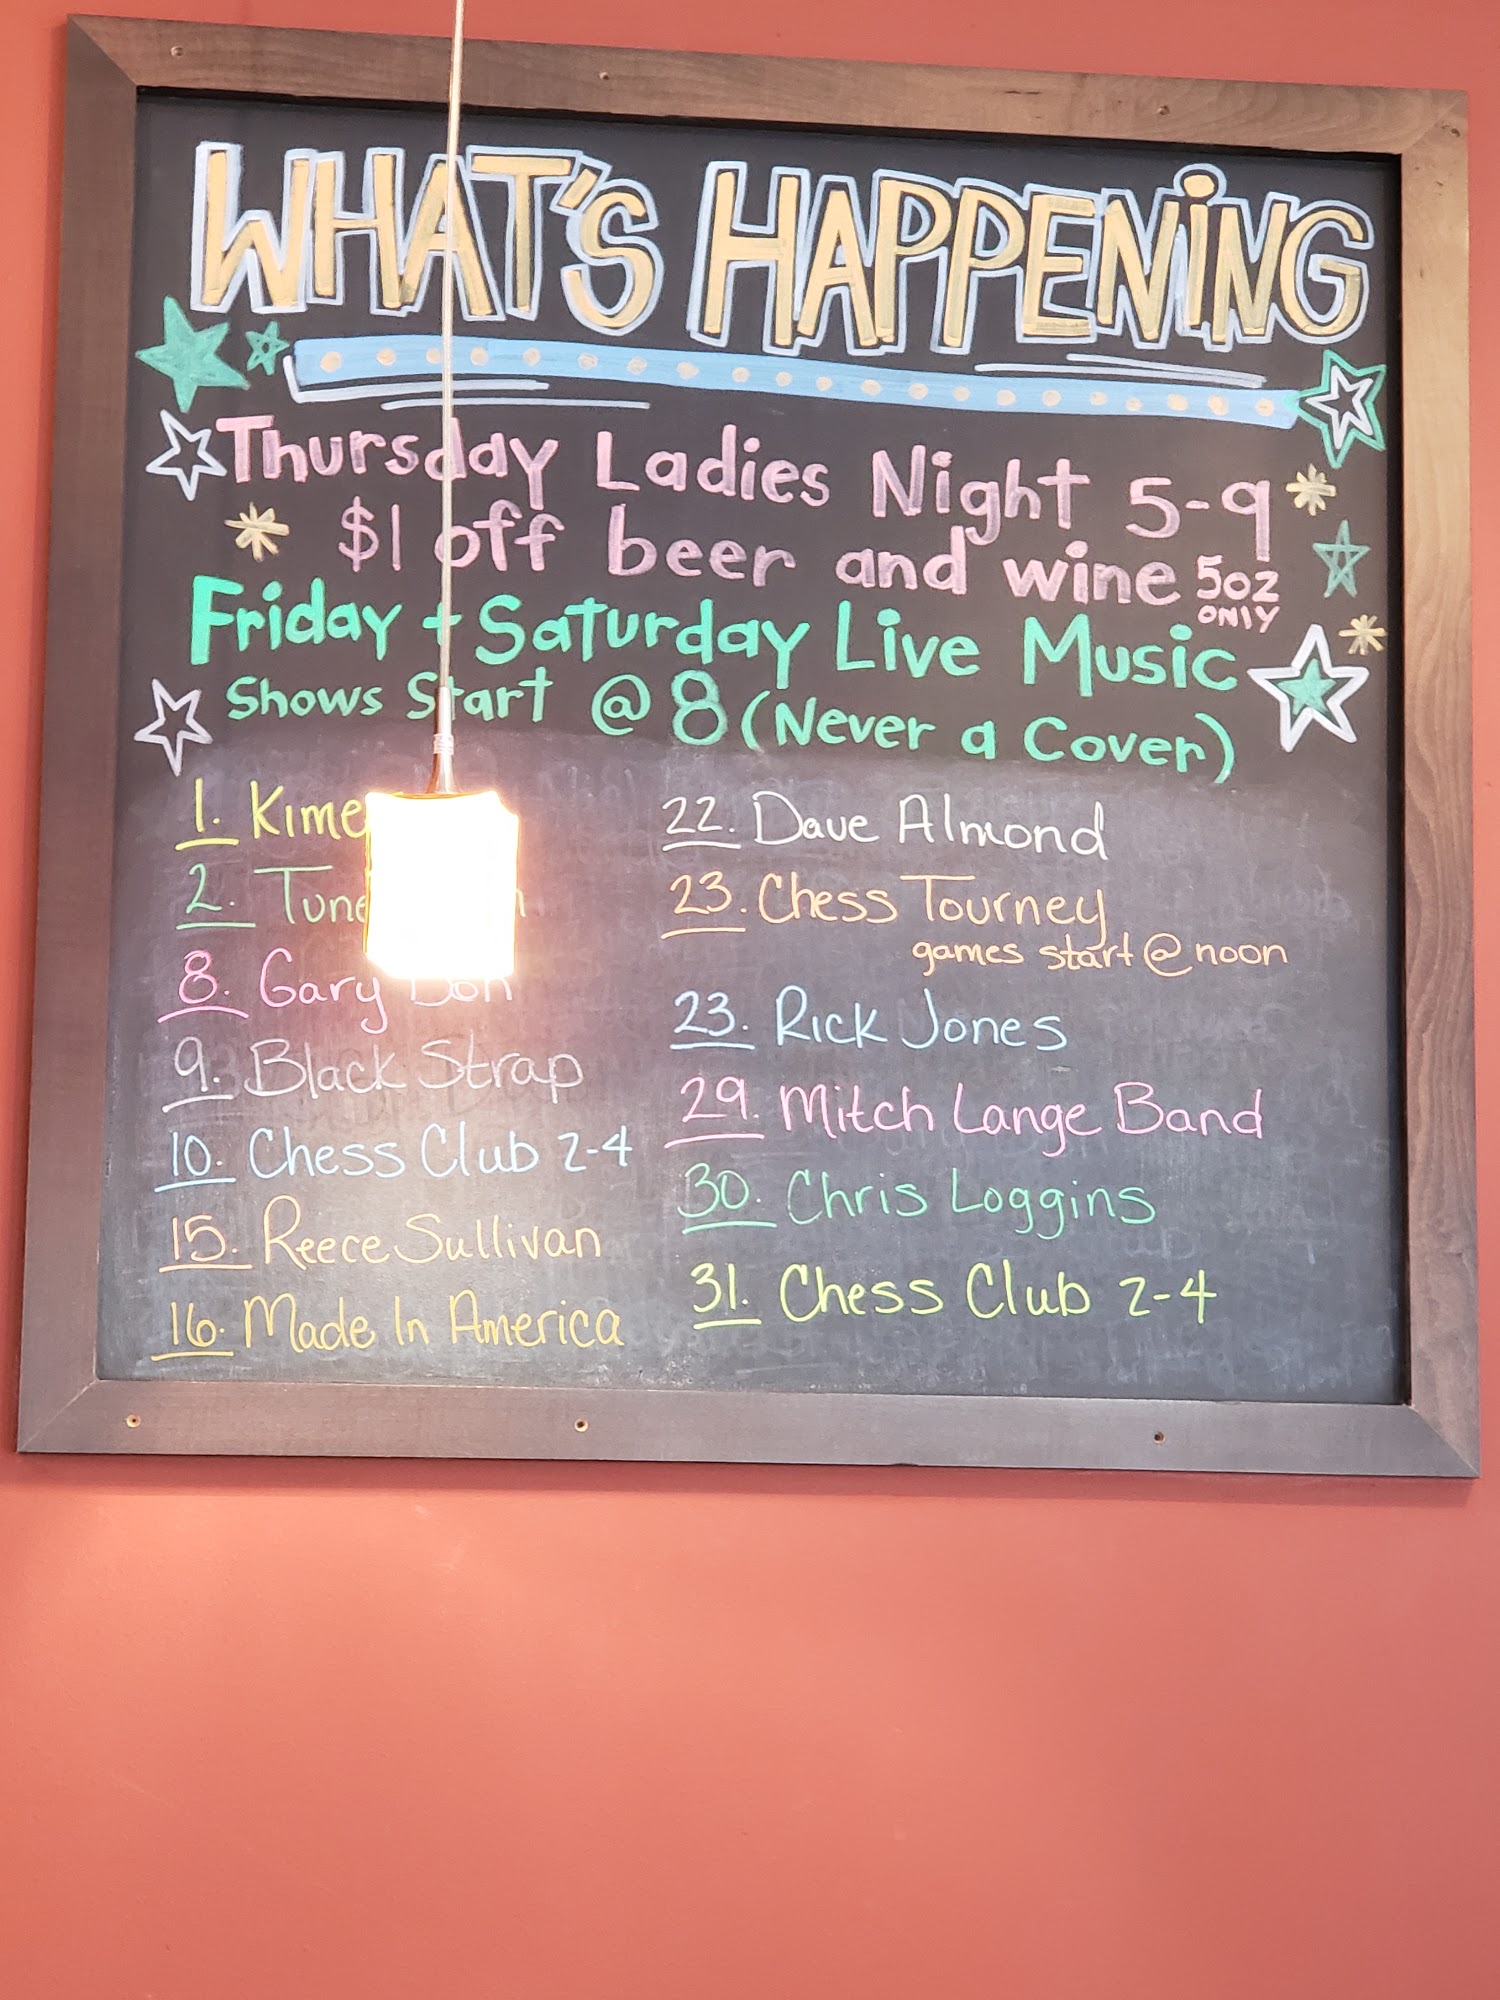 WHAT'S HAPPENING
Thursday Ladies Night 5-9
$1 off beer and wine 5oz ONLY
Friday + Saturday Live Music
Shows Start @ 8 (Never a Cover)
1.
2.
8. Gary
9. Black Strap
10. Chess Club 2-4
15. Reece Sullivan
16. Made In America
22. Dave Almond
23. Chess Tourney
games start @ noon
23. Rick Jones
29. Mitch Lange Band
30. Chris Loggins
31. Chess Club 2-4